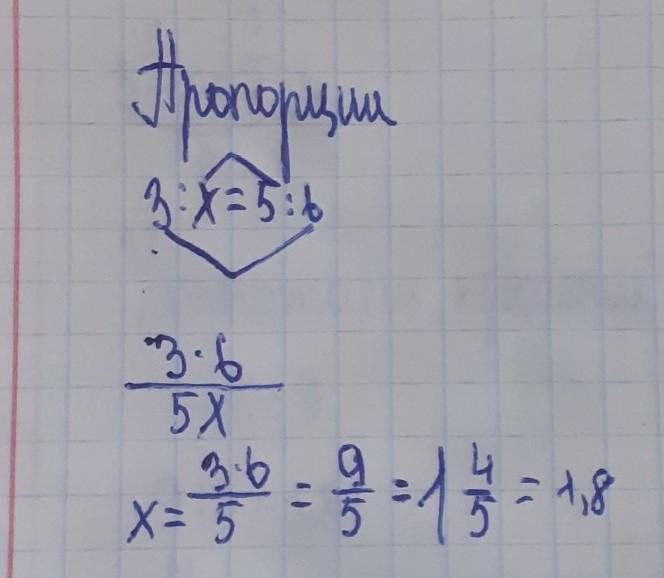 Пропорции
3:x=5:6
3·6
5x
x= 3·6/5 = 9/5 = 1 4/5 = 1,8